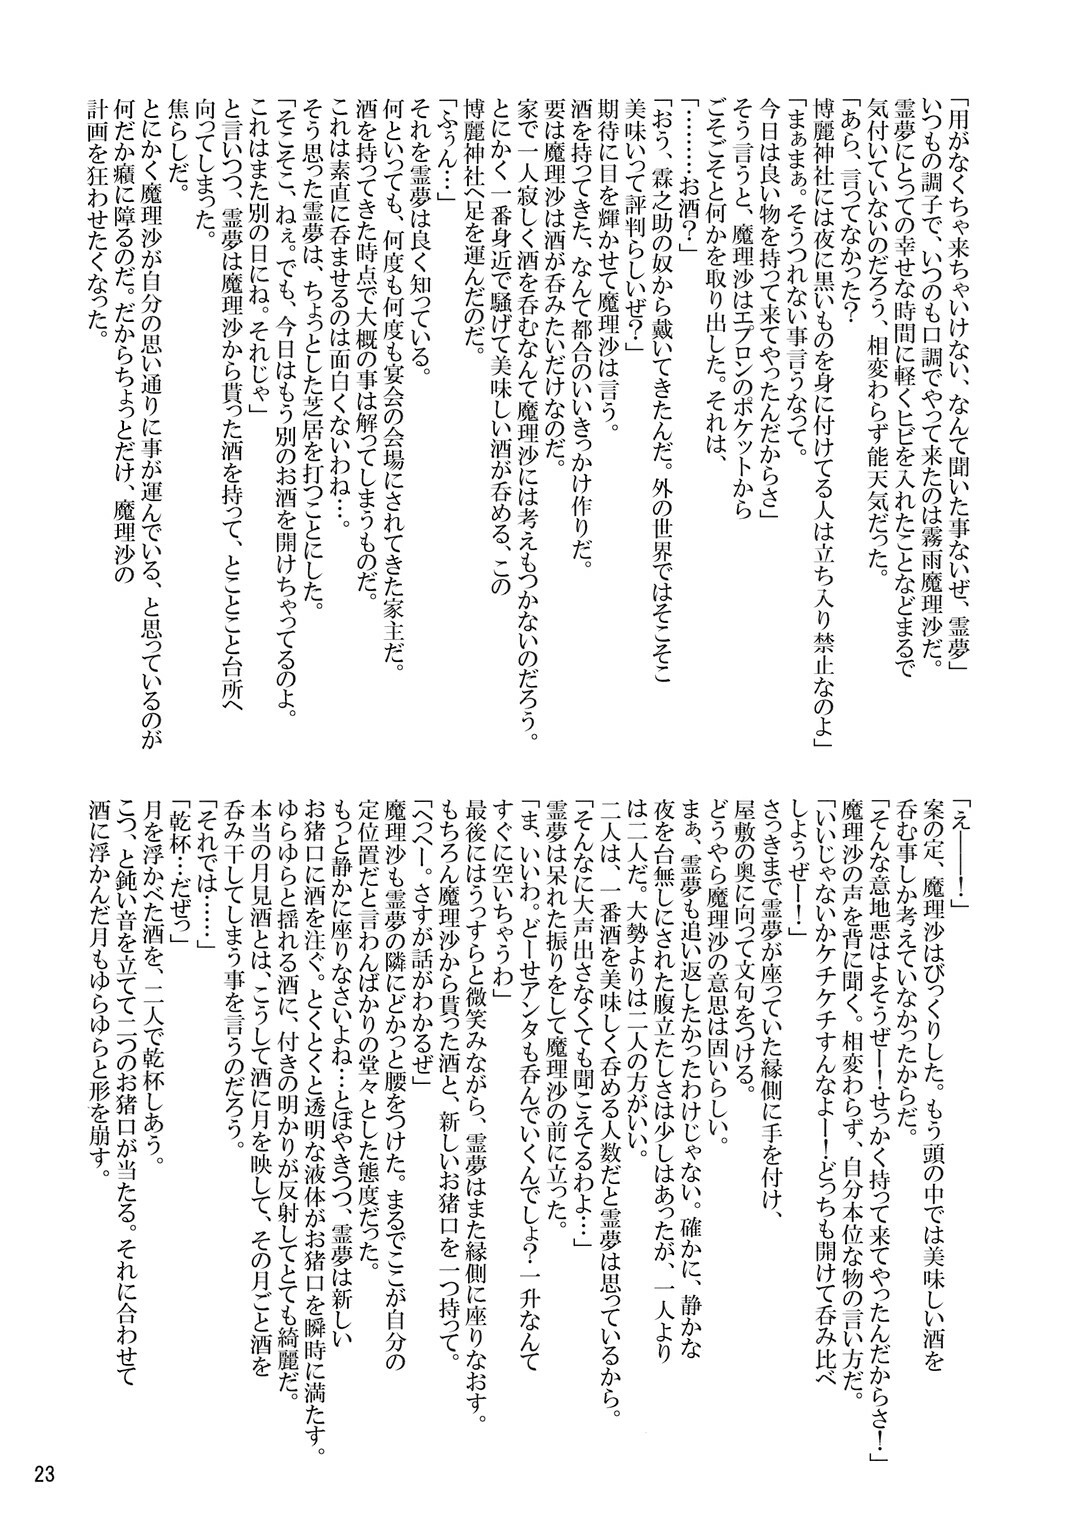 「用がなくちゃ来ちゃいけない、なんて聞いた事ないぜ、霊夢」
いつもの調子で、いつのも口調でやって来たのは霧雨魔理沙だ。
霊夢にとっての幸せな時間に軽くヒビを入れたことなどまるで
気付いていないのだろう、相変わらず能天気だった。
「あら、言ってなかった？
博麗神社には夜に黒いものを身に付けてる人は立ち入り禁止なのよ」
「まぁまぁ。そうつれない事言うなって。
今日は良い物を持って来てやったんだからさ」
そう言うと、魔理沙はエプロンのポケットから
ごそごそと何かを取り出した。それは、
「………お酒？」
「おう、霖之助の奴から戴いてきたんだ。外の世界ではそこそこ
美味いって評判らしいぜ？」
期待に目を輝かせて魔理沙は言う。
酒を持ってきた、なんて都合のいいきっかけ作りだ。
要は魔理沙は酒が呑みたいだけなのだ。
家で一人寂しく酒を呑むなんて魔理沙には考えもつかないのだろう。
とにかく一番身近で騒げて美味しい酒が呑める、この
博麗神社へ足を運んだのだ。
「ふぅん…」
それを霊夢は良く知っている。
何といっても、何度も何度も宴会の会場にされてきた家主だ。
酒を持ってきた時点で大概の事は解ってしまうものだ。
これは素直に呑ませるのは面白くないわね…。
そう思った霊夢は、ちょっとした芝居を打つことにした。
「そこそこ、ねぇ。でも、今日はもう別のお酒を開けちゃってるのよ。
これはまた別の日にね。それじゃ」
と言いつつ、霊夢は魔理沙から貰った酒を持って、とことこと台所へ
向ってしまった。
焦らしだ。
とにかく魔理沙が自分の思い通りに事が運んでいる、と思っているのが
何だか癪に障るのだ。だからちょっとだけ、魔理沙の
計画を狂わせたくなった。
「え――！」
案の定、魔理沙はびっくりした。もう頭の中では美味しい酒を
呑む事しか考えていなかったからだ。
「そんな意地悪はよそうぜー！せっかく持って来てやったんだからさ！」
魔理沙の声を背に聞く。相変わらず、自分本位な物の言い方だ。
「いいじゃないかケチケチすんなよー！どっちも開けて呑み比べ
しようぜー！」
さっきまで霊夢が座っていた縁側に手を付け、
屋敷の奥に向って文句をつける。
どうやら魔理沙の意思は固いらしい。
まぁ、霊夢も追い返したかったわけじゃない。確かに、静かな
夜を台無しにされた腹立たしさは少しはあったが、一人より
は二人だ。大勢よりは二人の方がいい。
二人は、一番酒を美味しく呑める人数だと霊夢は思っているから。
「そんなに大声出さなくても聞こえてるわよ…」
霊夢は呆れた振りをして魔理沙の前に立った。
「ま、いいわ。どーせアンタも呑んでいくんでしょ？一升なんて
すぐに空いちゃうわ」
最後にはうっすらと微笑みながら、霊夢はまた縁側に座りなおす。
もちろん魔理沙から貰った酒と、新しいお猪口を一つ持って。
「へっへー。さすが話がわかるぜ」
魔理沙も霊夢の隣にどかっと腰をつけた。まるでここが自分の
定位置だと言わんばかりの堂々とした態度だった。
もっと静かに座りなさいよね…とぼやきつつ、霊夢は新しい
お猪口に酒を注ぐ。とくとくと透明な液体がお猪口を瞬時に満たす。
ゆらゆらと揺れる酒に、付きの明かりが反射してとても綺麗だ。
本当の月見酒とは、こうして酒に月を映して、その月ごと酒を
呑み干してしまう事を言うのだろう。
「それでは……」
「乾杯…だぜっ」
月を浮かべた酒を、二人で乾杯しあう。
こつ、と鈍い音を立てて二つのお猪口が当たる。それに合わせて
酒に浮かんだ月もゆらゆらと形を崩す。
23